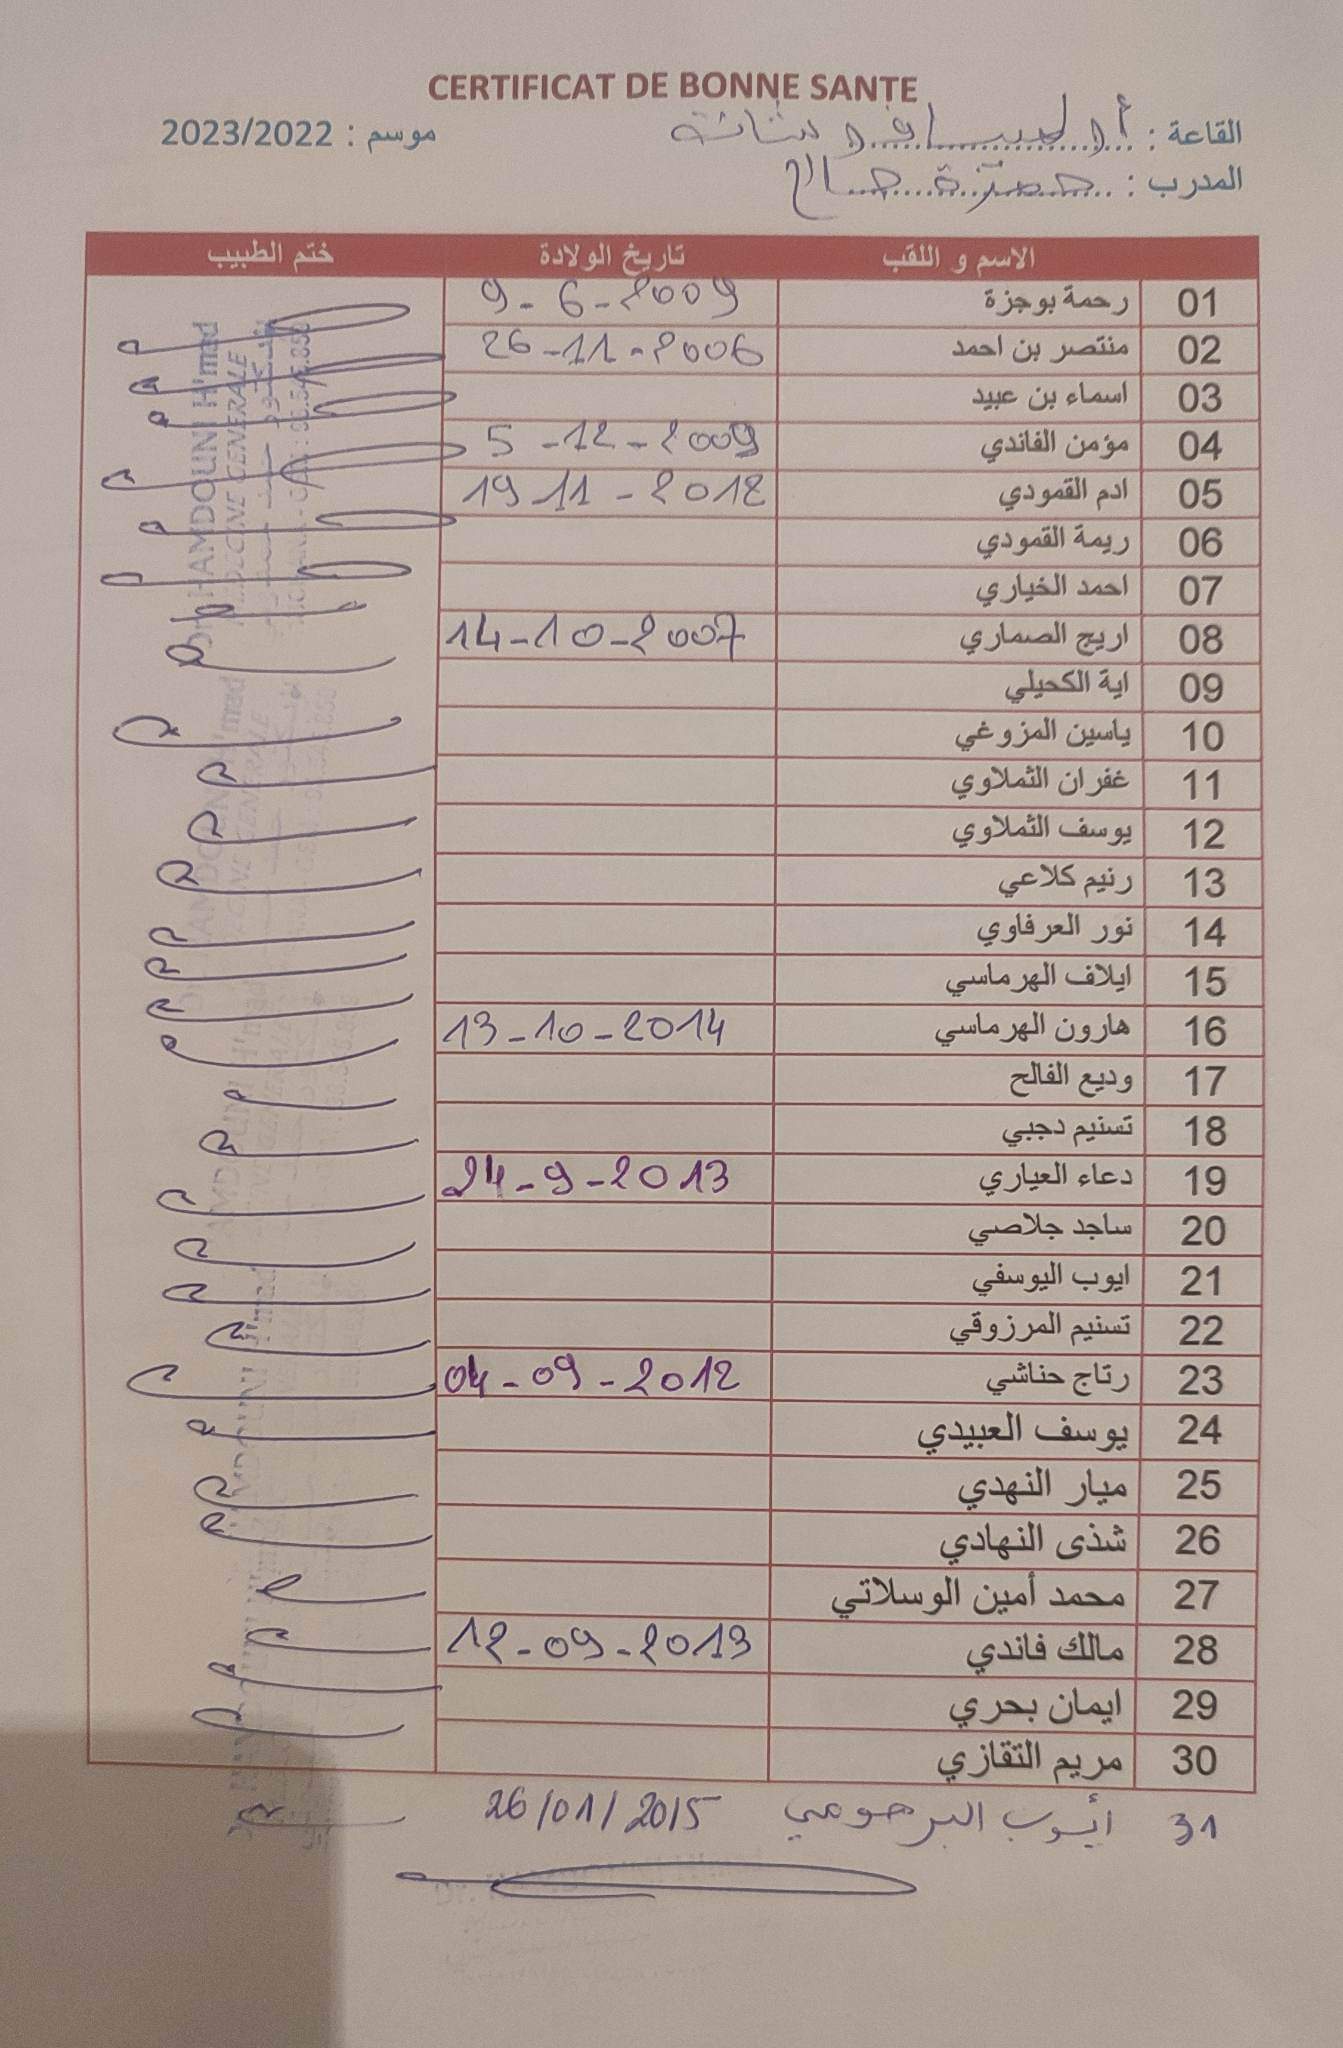 CERTIFICAT DE BONNE SANTE
القاعة :
موسم : 2023/2022
المدرب : حمزة صالح
الاسم و اللقب تاريخ الولادة ختم الطبيب
01 رحمة بوجزة 9-6-2009
02 منتصر بن احمد 26-11-2006
03 اسماء بن عبيد
04 مؤمن الفاندي 5-12-2009
05 ادم القمودي 19 11-2012
06 ريمة القمودي
07 احمد الخياري
08 اريج الصماري 14-10-2007
09 اية الكحيلي
10 ياسين المزوغي
11 غفران الثملاوي
12 يوسف الثملاوي
13 رنيم كلاعي
14 نور العرفاوي
15 ايلاف الهرماسي
16 هارون الهرماسي 13-10-2014
17 وديع الفالح
18 تسنيم دجبي
19 دعاء العياري 24-9-2013
20 ساجد جلاصي
21 ايوب اليوسفي
22 تسنيم المرزوقي
23 رتاج حناشي 04-09-2012
24 يوسف العبيدي
25 ميار النهدي
26 شذى النهادي
27 محمد أمين الوسلاتي
28 مالك فاندي 12-09-2013
29 ايمان بحري
30 مريم التقازي
31 أيوب البرهومي 26/01/2015
Dr. HAMDOUNI H'med
MEDECINE GENERALE